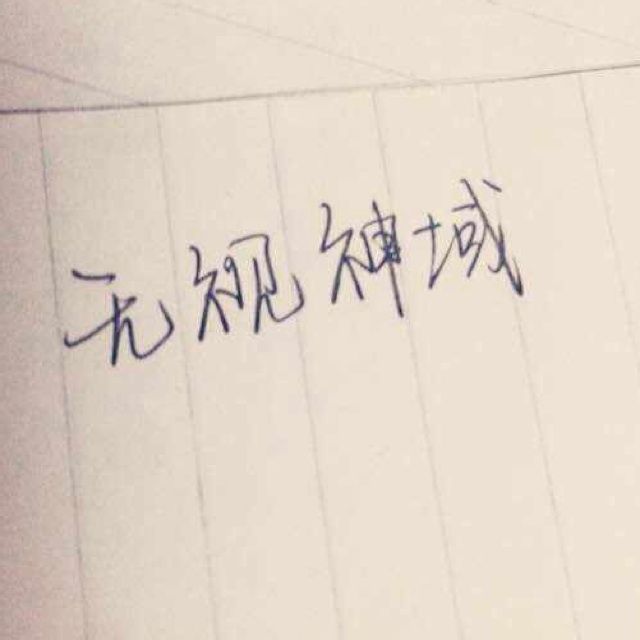 无视神域